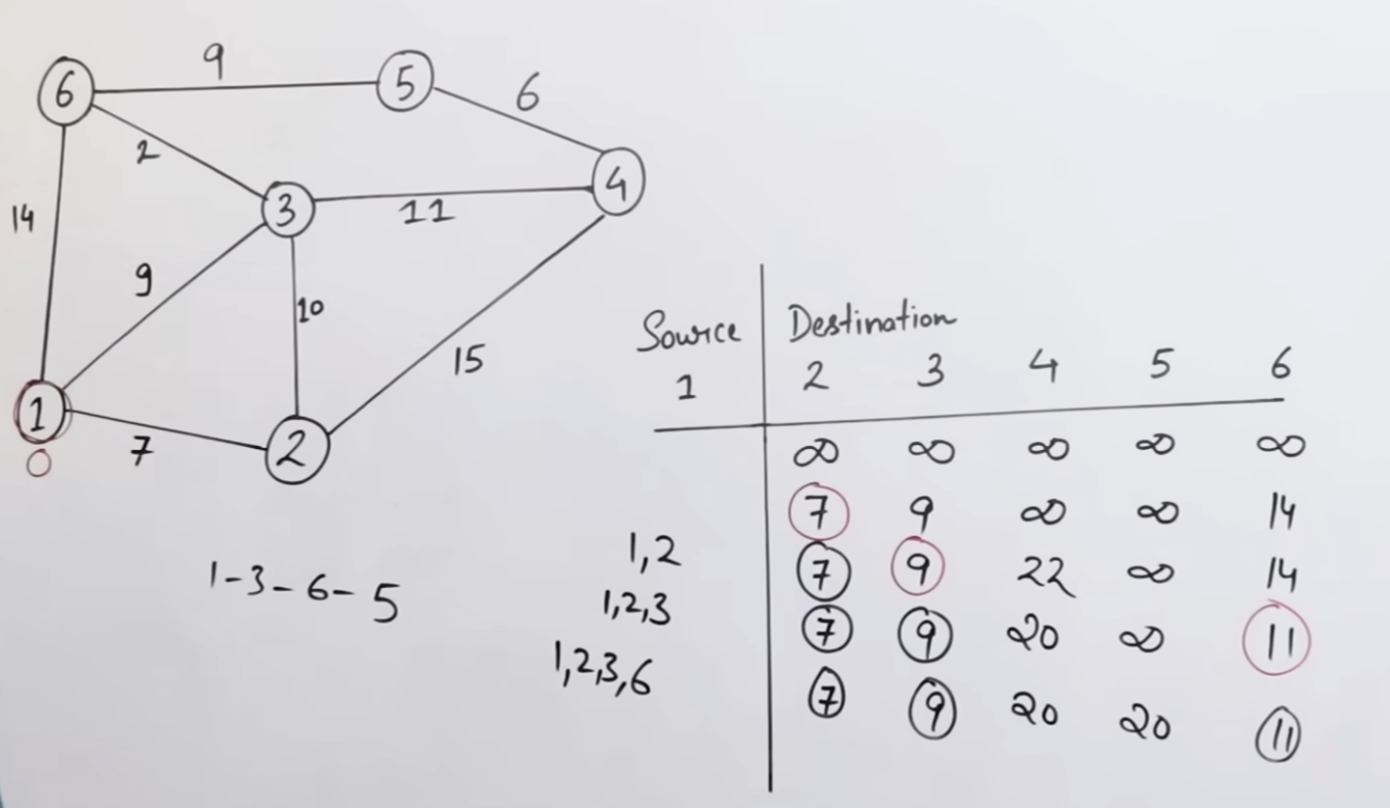 9
6 5
6
2
14
3
4
11
9
10
15
1
7
2
0
1-3-6-5
Source Destination
1 2 3 4 5 6
∞ ∞ ∞ ∞ ∞
7 9 ∞ ∞ 14
1,2 7 9 22 ∞ 14
1,2,3 7 9 20 ∞ 11
1,2,3,6 7 9 20 20 11